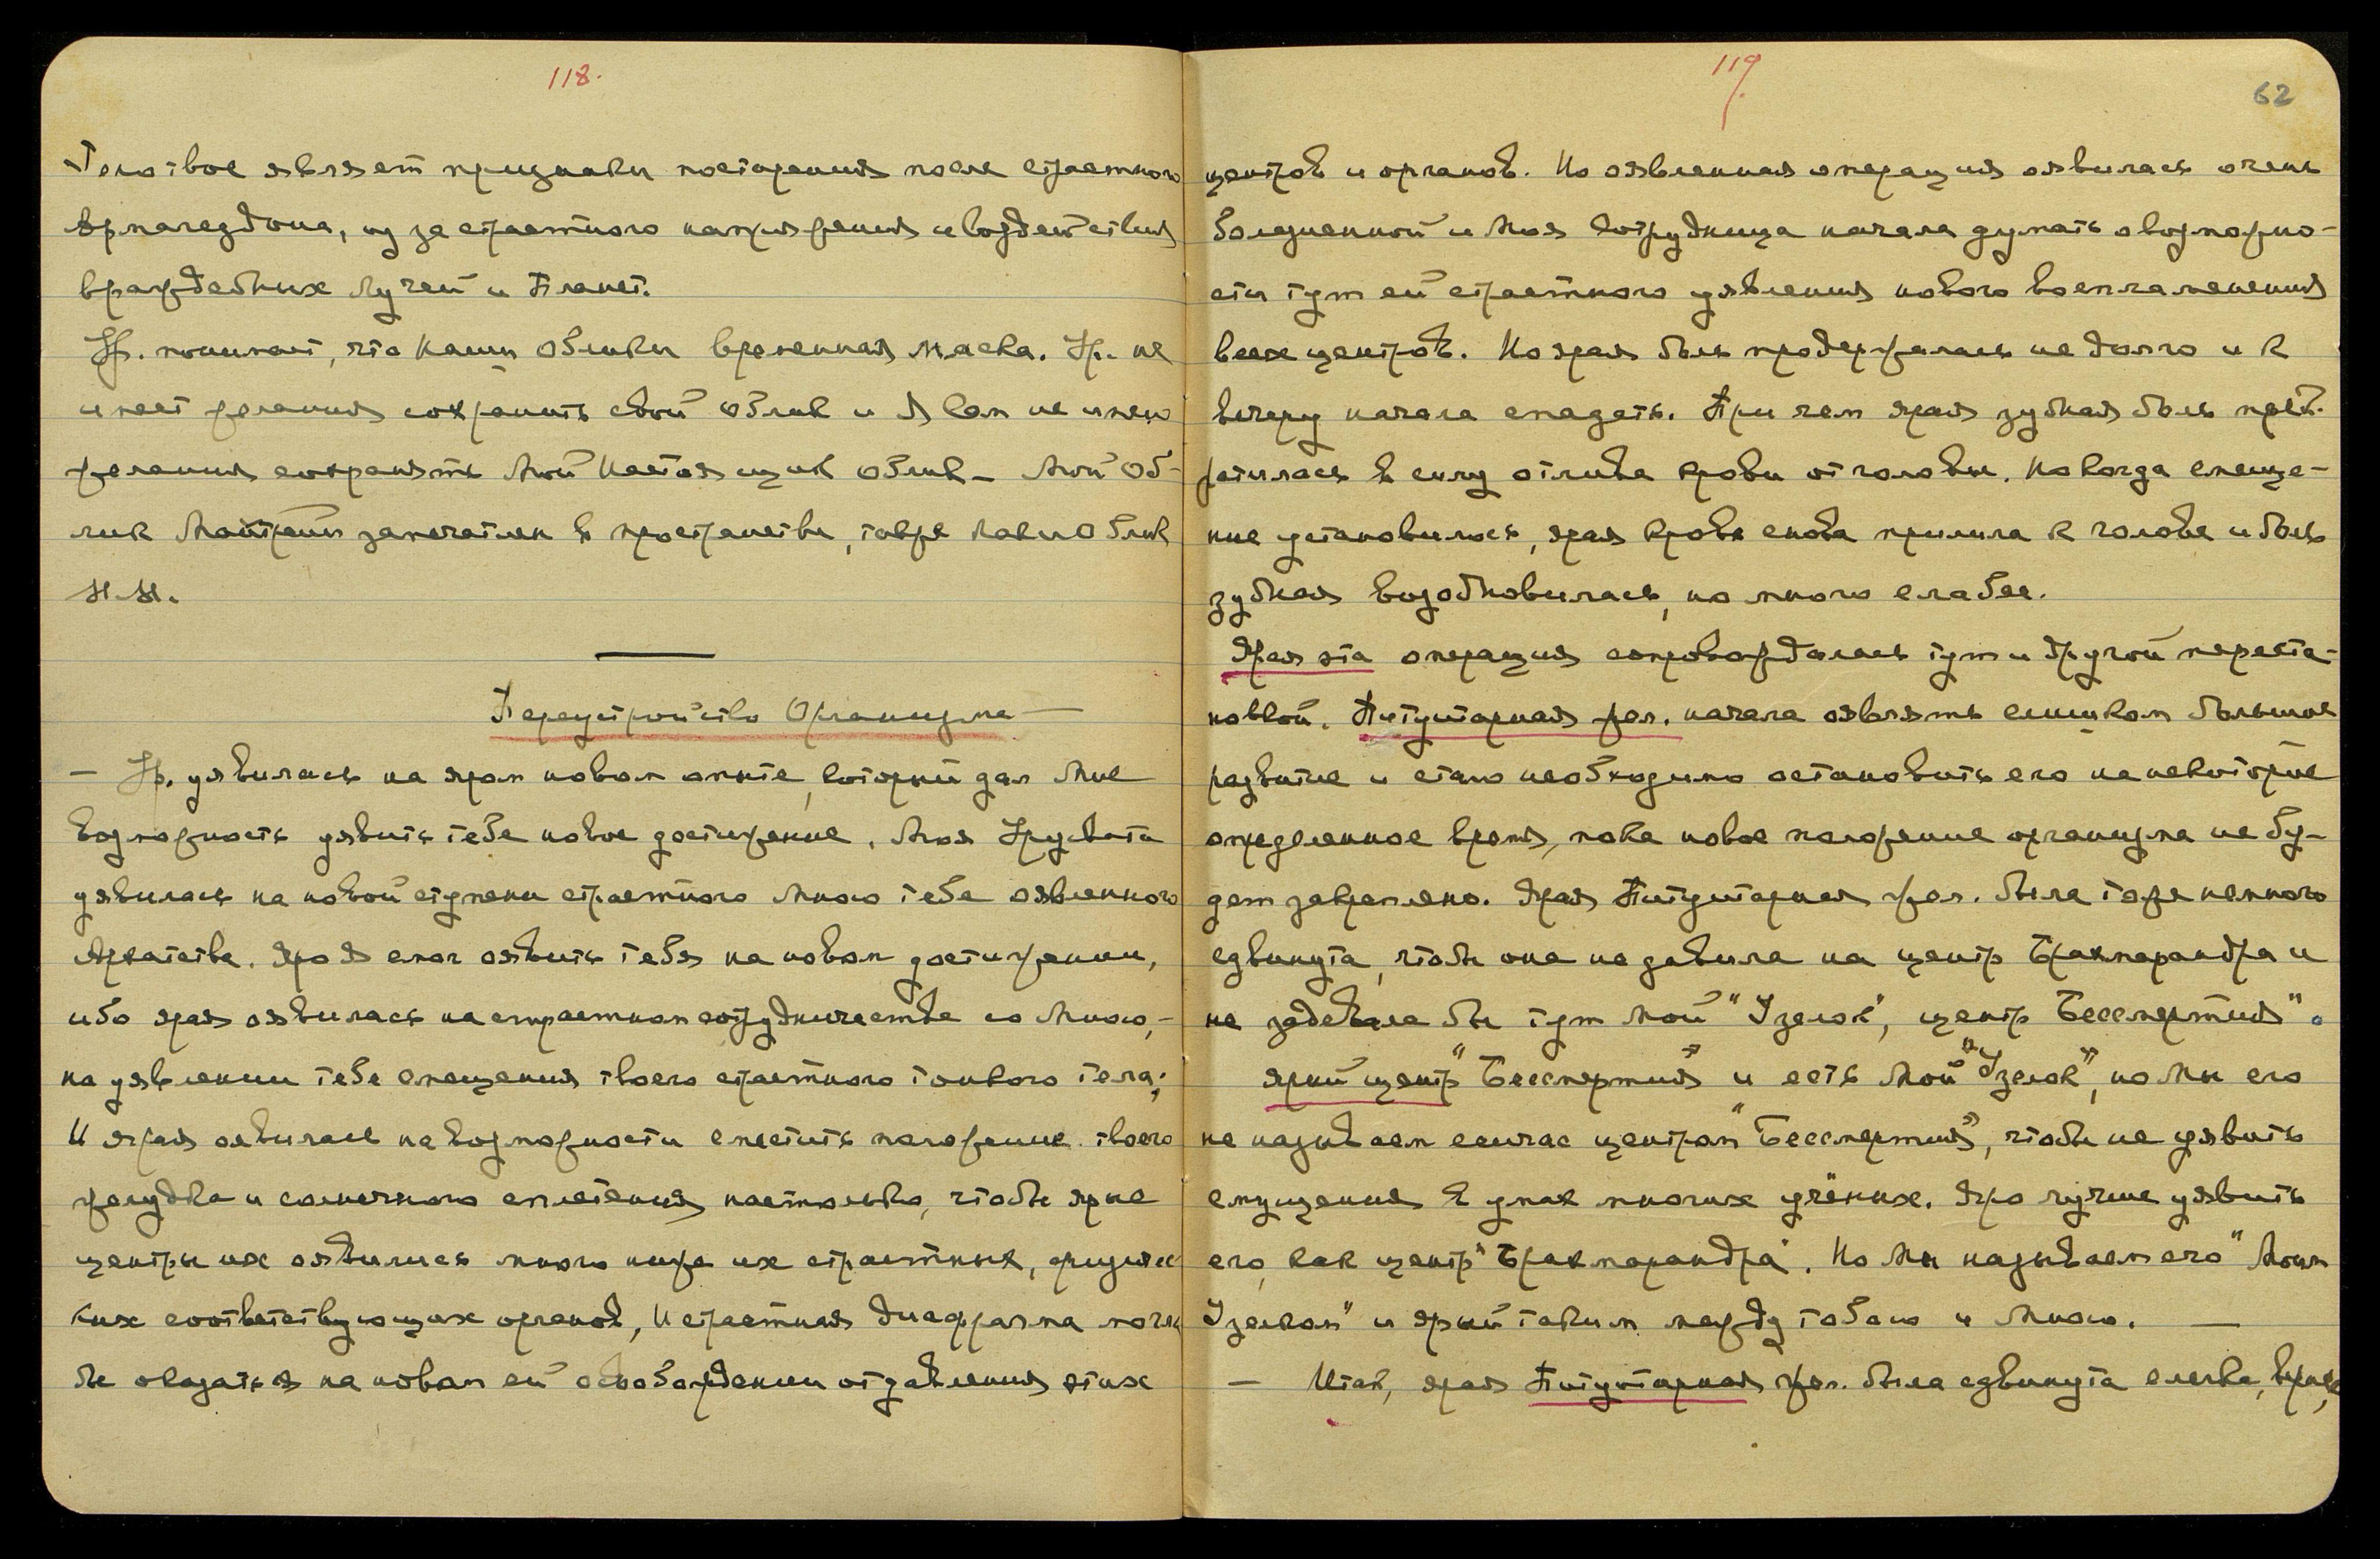 118.
Тело твое являет признаки постарения после страстного
Армагеддона, из за страстного напряжения и воздействия
враждебных Лучей и Планет.
Ур. понимает, что Наши Облики временная маска. Ур. не
имеет желания сохранить свой облик и Я Сам не имею
желания сохранять Мой Настоящий облик – Мой Об-
лик Майтрейи запечатлен в пространстве, также как и Облик
Н.Н.
Переустройство Организма —
— Ур. уявилась на яром новом опыте, который дал Мне
возможность уявить тебе новое достижение. Моя Урусвати
уявилась на новой ступени страстного Мною тебе оявленного
Архатства. Яро Я смог оявить тебя на новом достижении,
ибо ярая оявилась на страстном сотрудничестве со Мною, –
на уявлении тебе смещения твоего страстного тонкого тела;
И ярая оявилась на возможности сместить положение твоего
желудка и солнечного сплетения настолько, чтобы ярые
центры их оявились много ниже их страстных, физичес
ких соответствующих органов, И страстная диафрагма могла
бы оказаться на новом ей освобождении от давления этих
119.
62
центров и органов. Но оявленная операция оявилась очень
болезненной и Моя Сотрудница начала думать о возможно-
сти тут ей страстного уявления нового воспламенения
всех центров. Но ярая боль продержалась не долго и к
вечеру начала спадать. При чем ярая зубная боль прек.
ратилась в силу отлива крови от головы. Но когда смеще-
ние установилось, ярая кровь снова прилила к голове и боль
зубная возобновилась, но много слабее.
Ярая эта операция сопровождалась тут и другой переста-
новкой. Питуитарная жел. начала оявлять слишком большое
развитие и стало необходимо остановить его на некоторое
определенное время, пока новое положение организма не бу-
дет закреплено. Ярая Питуитарная жел. была тоже немного
сдвинута, чтобы она не давила на центр Брахмарандра и
не задевала бы тут Мой "Узелок", центр Бессмертия".
Ярый центр "Бессмертия" и есть Мой "Узелок", но Мы его
не называем сейчас центром "Бессмертия", чтобы не уявить
смущения в умах многих учёных. Яро лучше уявить
его, как центр "Брахмарандра". Но Мы называем его "Моим
Узелком" и ярый таким между тобою и Мною. —
— Итак, ярая Питуитарная жел. была сдвинута слегка, вернее,